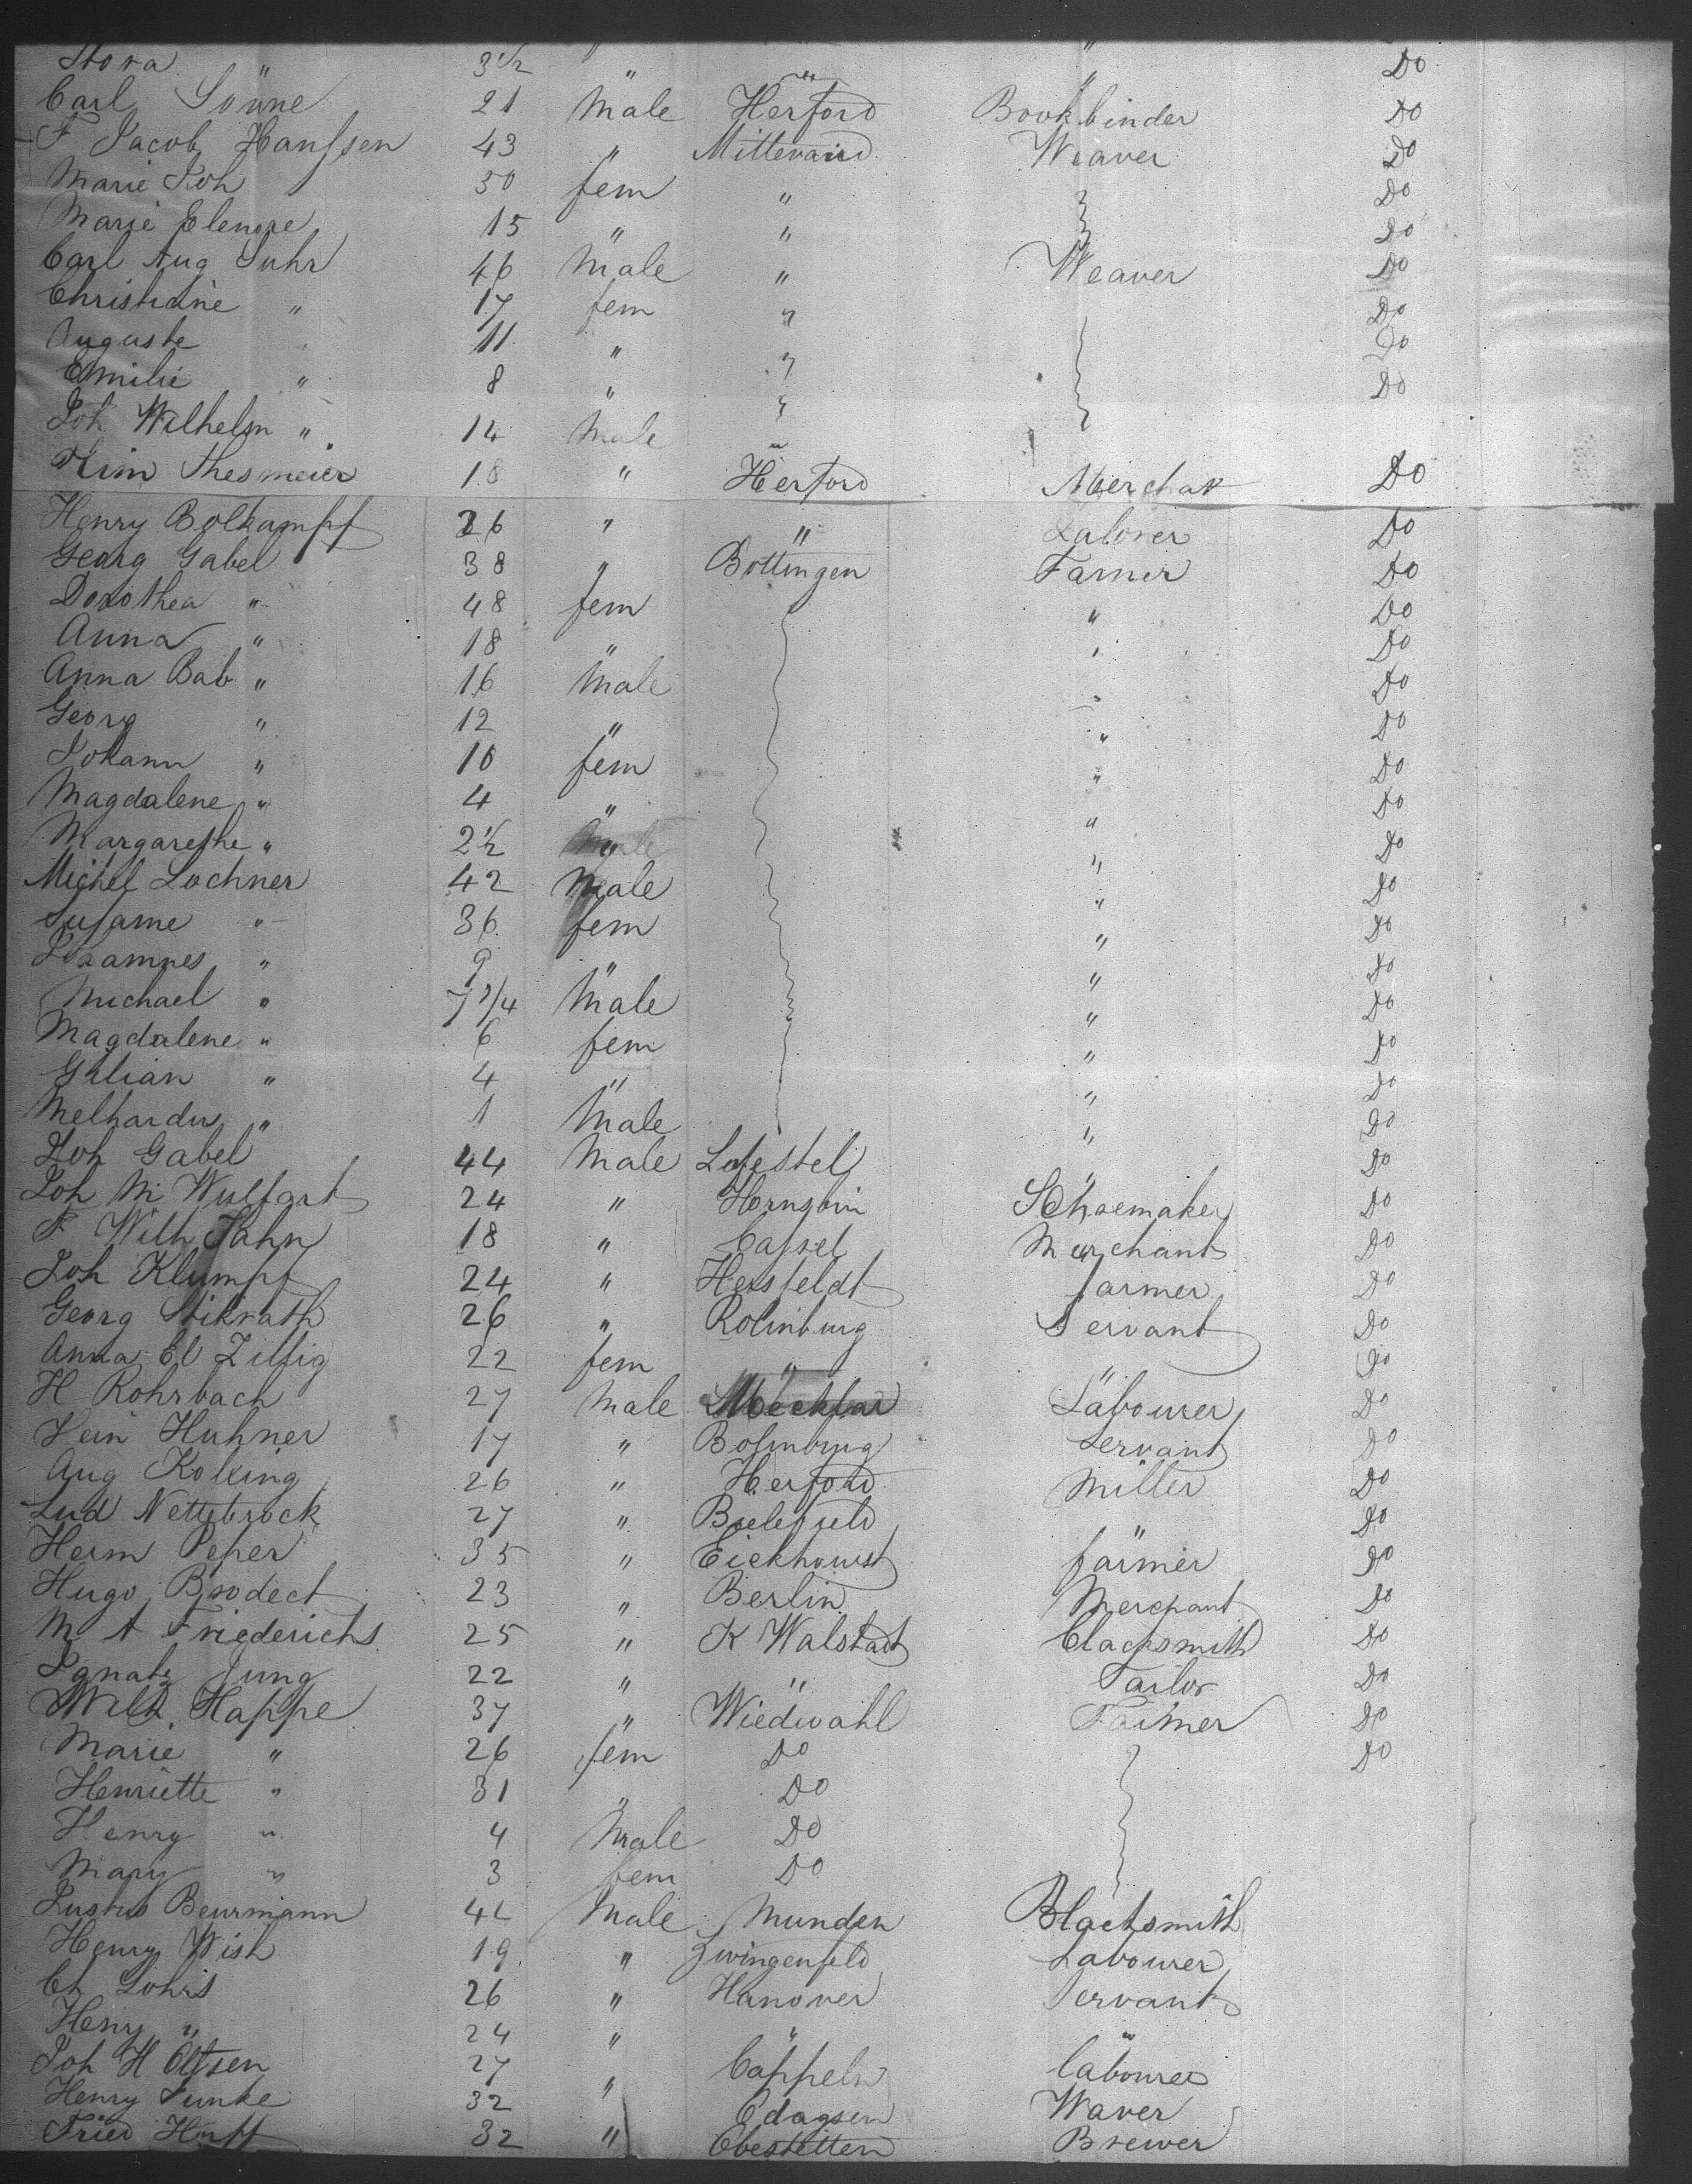 Flora " 3½ " " " Do
Carl Sönne 21 Male Herford Bookbinder Do
F Jacob Hanssen 43 " Mittevaird Weaver Do
Marie Joh 30 fem " Do
Marie Elenore 15 " " Do
Carl Aug Suhr 46 Male " Weaver Do
Christiane " 17 fem " Do
Auguste " 11 " " Do
Emilie " 8 " " Do
Joh Wilhelm " 14 Male "
Thesmeier 18 " Herford Do
Henry Bolkampf 26 " " Laborer Do
Georg Gabel 38 " Bottingen Farmer Do
Dorothea " 48 fem " Do
Anna " 18 " " Do
Anna Bab " 16 Male " Do
Georg " 12 " " Do
Johann " 10 fem " Do
Magdalene " 4 " " Do
Margarethe " 2½ " " Do
Michel Lochner 42 Male " Do
Susanne " 36 fem " Do
" 9 " " Do
Michael " 7 3/4 Male " Do
Magdalene " 6 fem " Do
" 4 " " Do
" 1 Male " Do
Joh Gabel 44 Male Do
Joh M Wulfart 24 " Schoemaker Do
F Wilh Jahn 18 " Cassel Merchant Do
Joh Klumpf 24 " Hersfeldt farmer Do
Georg Stikrath 26 " Servant Do
Anna El Zilfig 22 fem " Do
H Rohrbach 27 Male Mecklar Labourer Do
Hein Huhner 17 " Servant Do
Aug Kolking 26 " Herford Miller Do
Lud Nettebrock 27 " Bielefeld " Do
Herm Peper 35 " Eickhourst farmer Do
Hugo Brodect 23 " Berlin Merchant Do
M A Friederichs 25 " K Walstadt Clacksmith Do
Ignatz Jung 22 " " Tailor Do
Wilh Happe 37 " Wiedwahl Farmer Do
Marie " 26 fem Do Do
Henriette " 31 " Do
Henry " 4 Male Do
Mary " 3 fem Do
Justus Beurmann 42 Male Munden Blacksmith
Henry Wish 19 " Zwingenfeld Labourer
Ch Lohris 26 " Hanover Servant
Henry " 24 " " "
Joh H Oltsen 27 " Cappeln Labourer
Henry Funke 32 " Edagsen Waver
Fried Huff 32 " Ebestetten Brewer